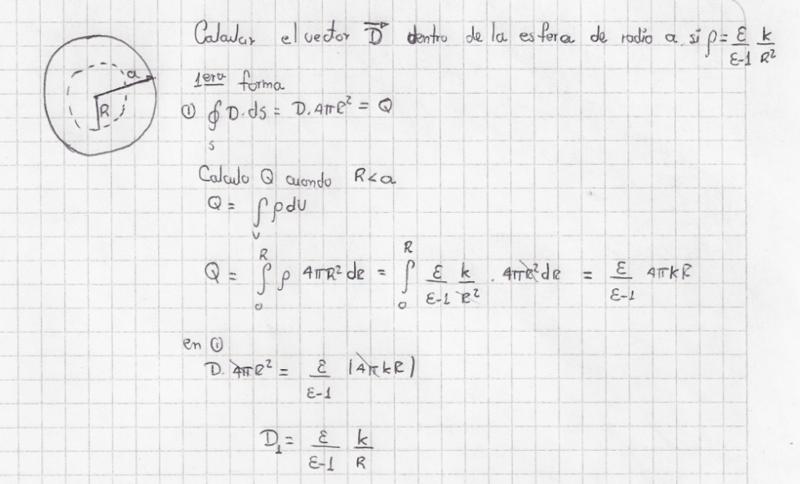 Calcular el vector D⃗ dentro de la esfera de radio a si ρ = ε/(ε-1) k/R²
a
R
1era forma
① ∮_S D.ds = D.4πR² = Q
Calculo Q cuando R<a
Q = ∫_V ρdV
Q = ∫_0^R ρ 4πR² dR = ∫_0^R ε/(ε-1) k/R² . 4πR² dR = ε/(ε-1) 4πkR
en ①
D. 4πR² = ε/(ε-1) (4πkR)
D₁ = ε/(ε-1) k/R